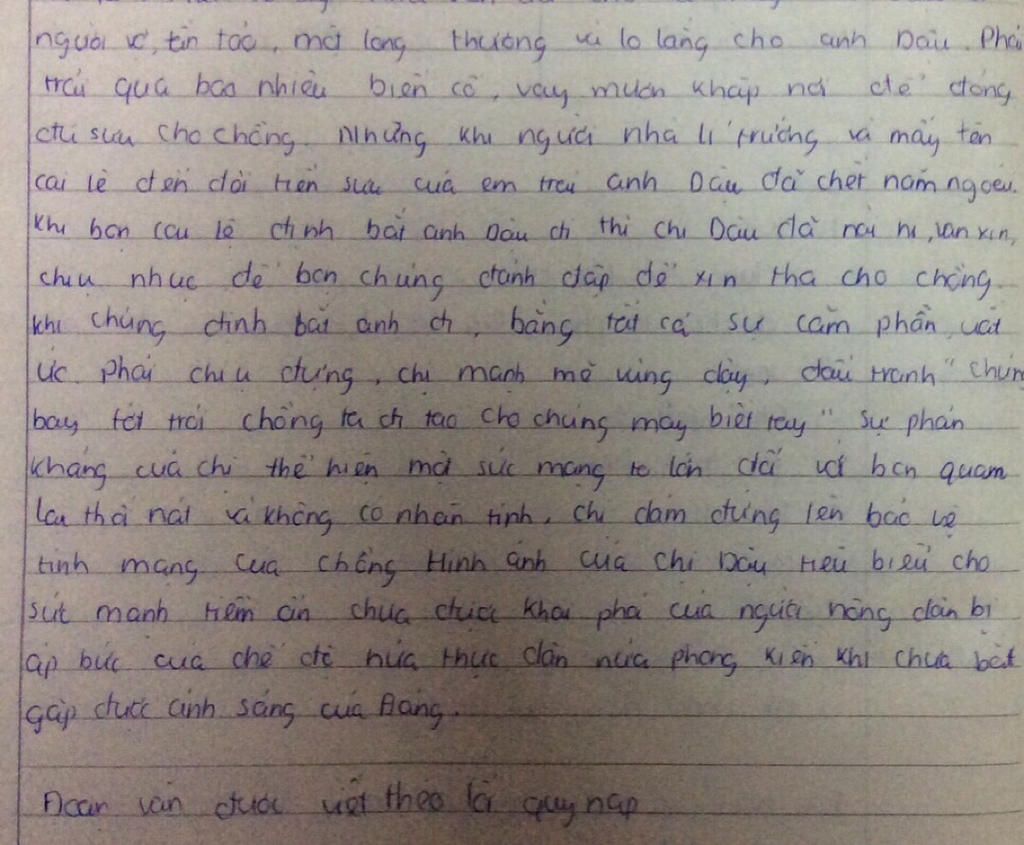 người vợ, tần tảo, một lòng thương và lo lắng cho anh Dậu. Phải
trải qua bao nhiêu biến cố, vay mượn khắp nơi để đóng
đủ sưu cho chồng. Nhưng khi người nhà lí trưởng và mấy tên
cai lệ đến đòi tiền sưu của em trai anh Dậu đã chết năm ngoái.
Khi bọn cai lệ định bắt anh Dậu đi thì chị Dậu đã nài nỉ, van xin,
chịu nhục để bọn chúng đánh đập để xin tha cho chồng.
khi chúng định bắt anh đi, bằng tất cả sự căm phẫn, uất
ức phải chịu đựng, chị mạnh mẽ vùng dậy, đấu tranh "chúng
bay tột trói chồng ta đi tao cho chúng mày biết tay" sự phản
kháng của chị thể hiện một sức mạng to lớn đối với bọn quam
lại thối nát và không có nhân tính, chị dám đứng lên bảo vệ
tính mạng của chồng. Hình ảnh của chị Dậu tiêu biểu cho
sức mạnh tiềm ẩn chưa được khai phá của người nông dân bị
áp bức của chế độ nửa thực dân nửa phong kiến khi chưa bắt
gặp được ánh sáng của Đảng.
Đoạn văn được viết theo lối quy nạp